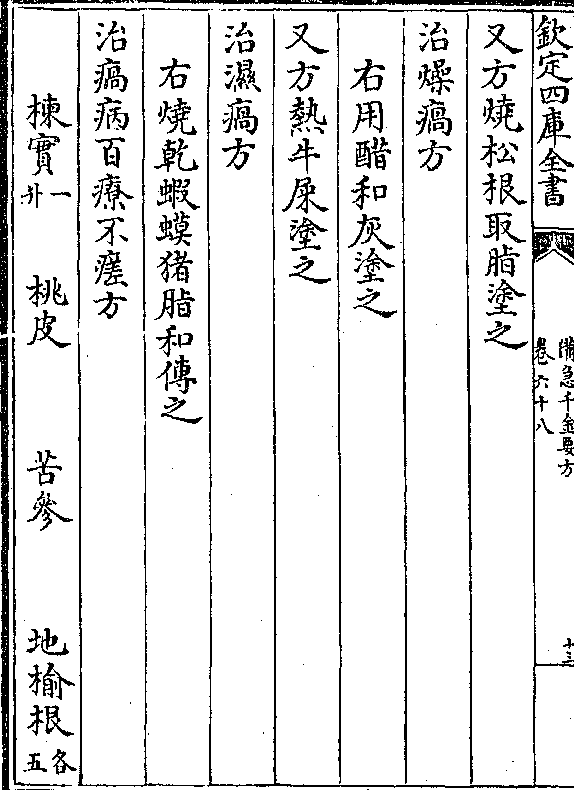 欽定四庫全書
備急千金要方
卷六十八
十三
又方燒松根取脂塗之
治燥瘑方
右用醋和灰塗之
又方熱牛屎塗之
治濕瘑方
右燒乾蝦蟆猪脂和傅之
治瘑病百療不瘥方
楝實一升 桃皮 苦參 地榆根各五